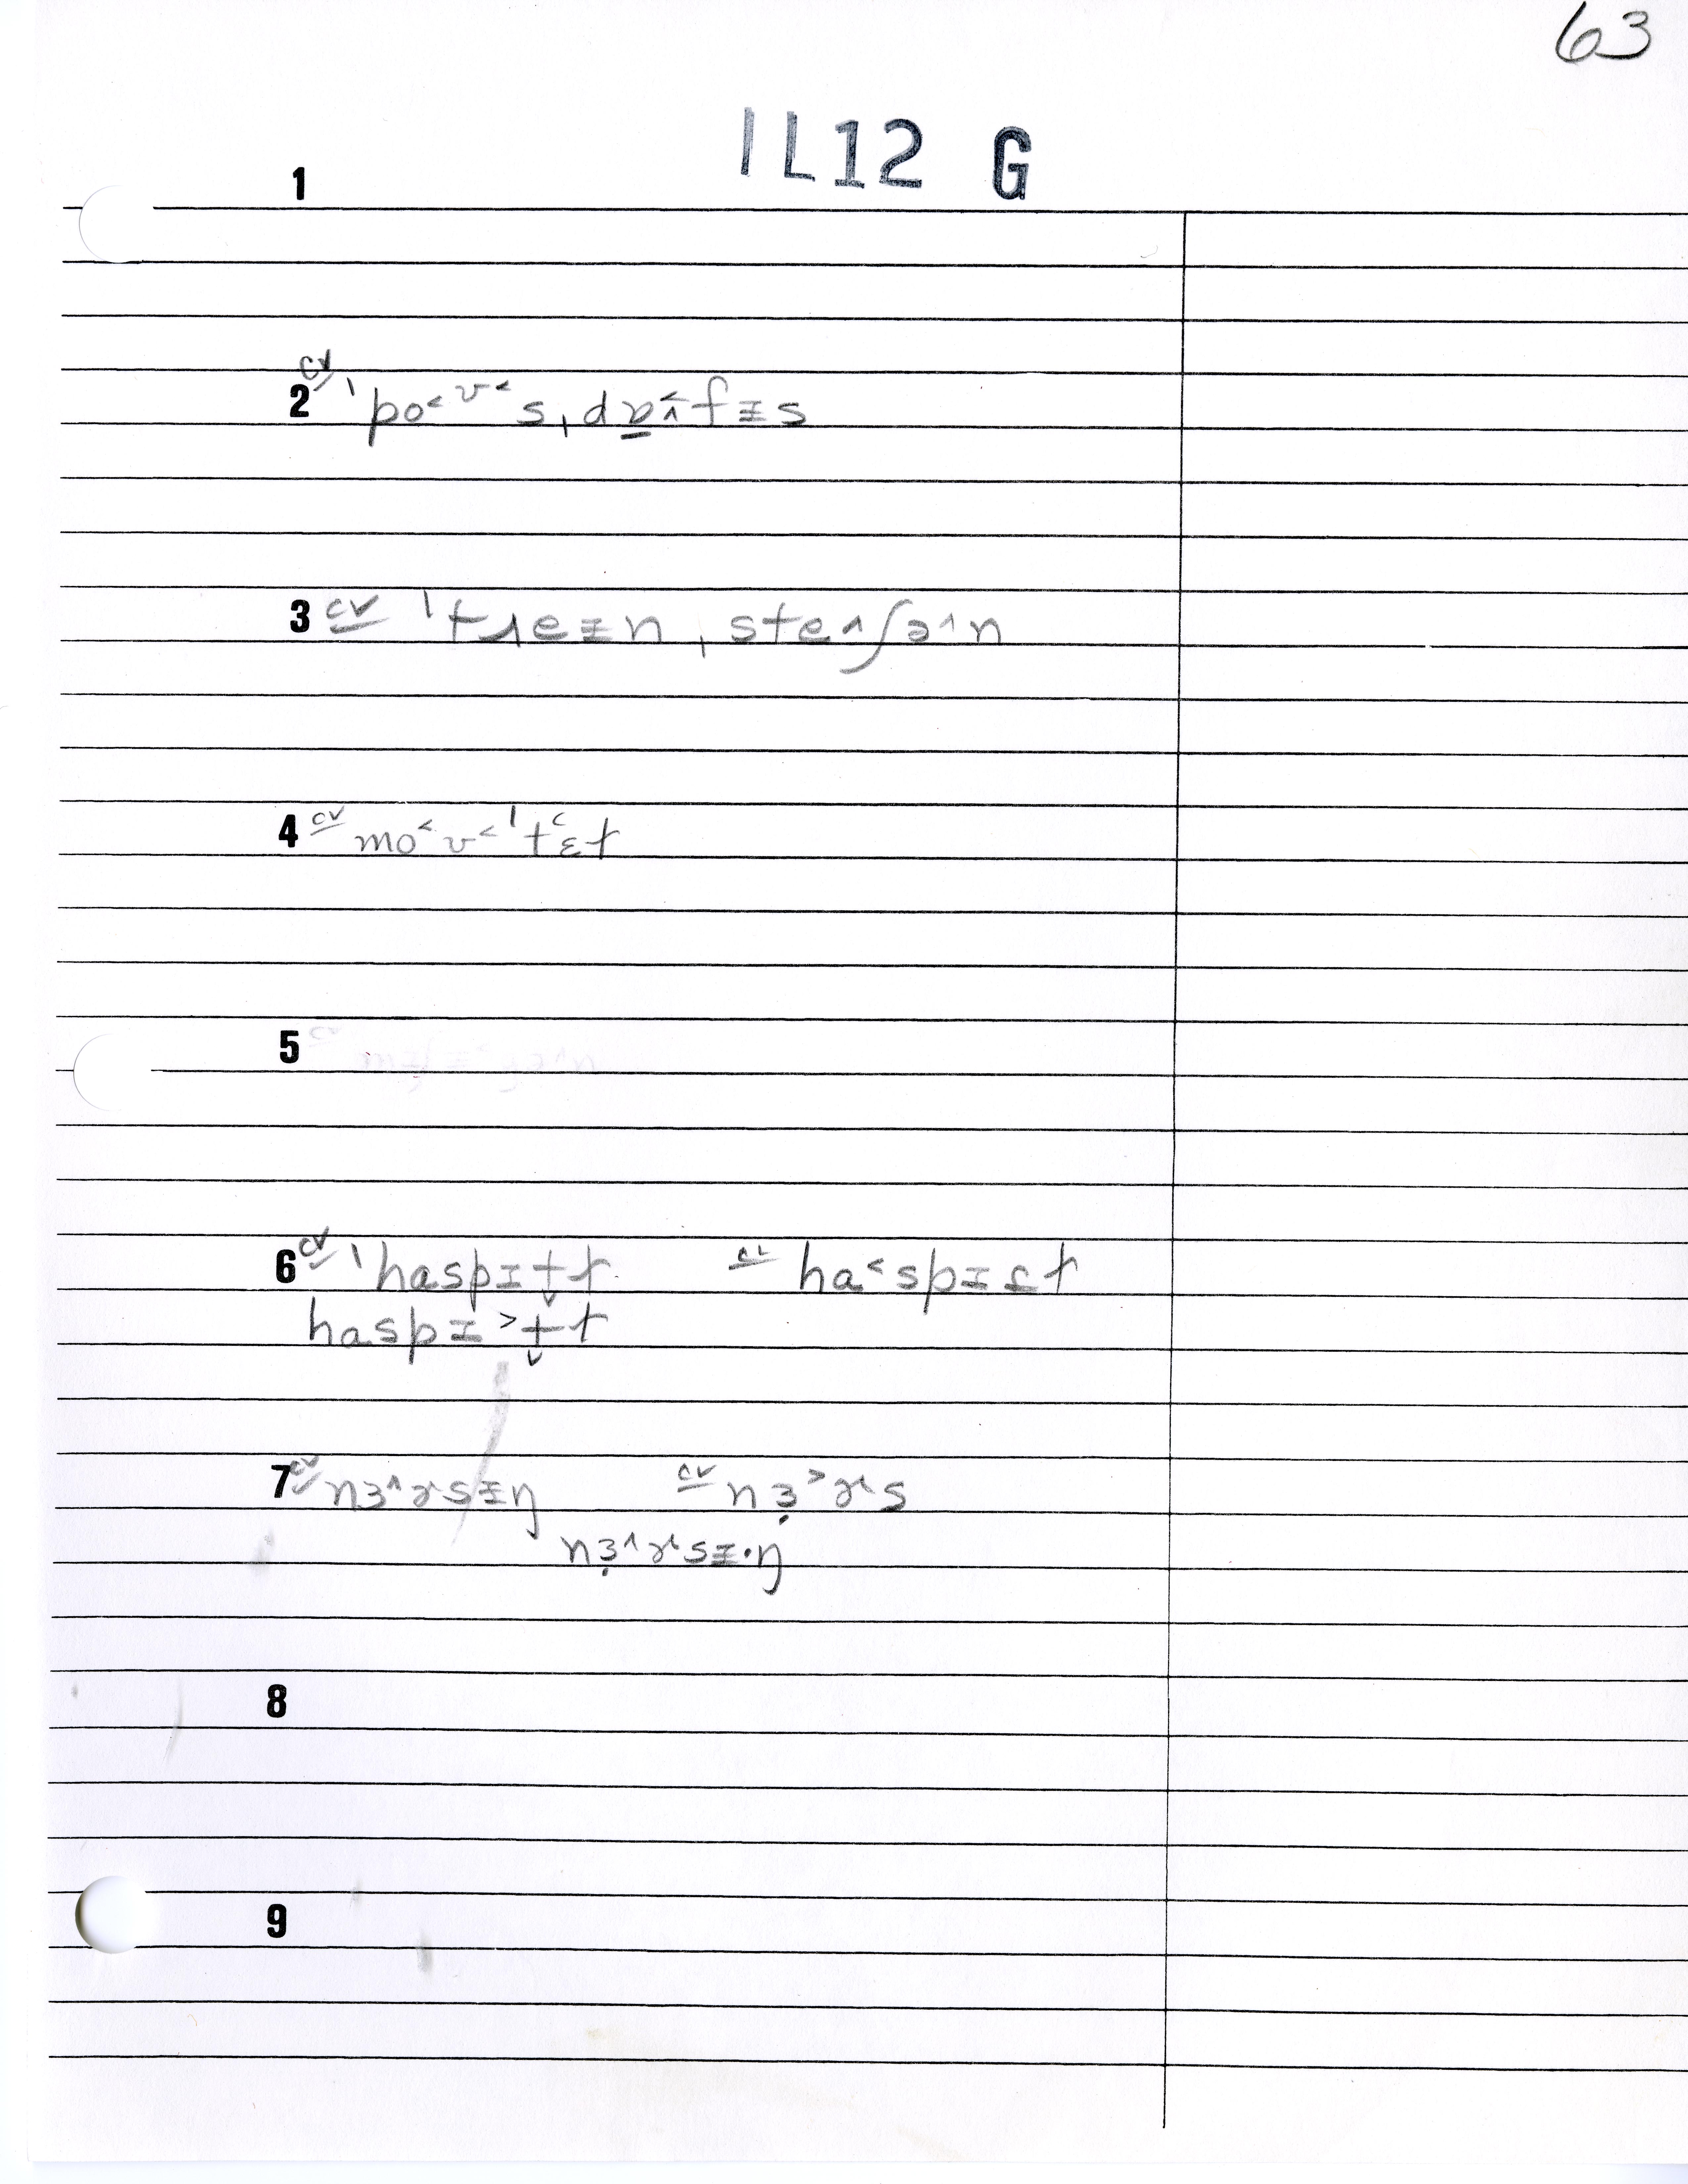 63
IL12 G
1
2 cv ˈpo˂ʊ˂s ˌdɒ̱˂˄fɪs
3 cv ˈtɹeɪn ˌste˄ʃə˄n
4 cv mo˂ʊ˂ˈtʿɛɫ
5
6 cv ˈhaspɪt̬ɫ cv ha˂spɪɾɫ
haspɪ˃t̬ɫ
7 cv nɜ˄ɚsɪŋ cv nɜ̣˃ɚs
nɜ̣˄ɚsɪ·ŋ
8
9